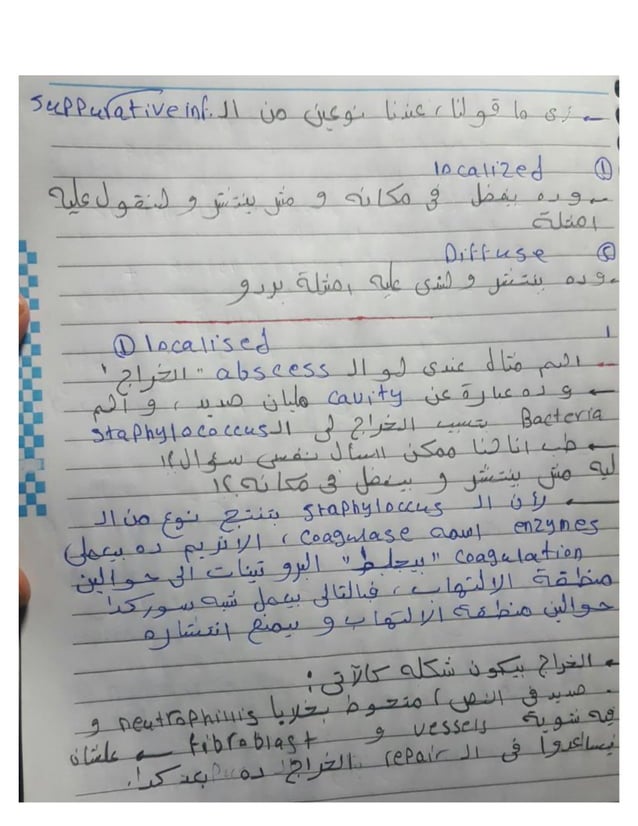 ← زى ما قولنا، عندنا نوعين من ال suppurative inf.
① localized
← وده بيفضل فى مكانه و مش بينتشر و لنقول عليه
امثلة
② Diffuse
← وده بينتشر و لندى عليه امثلة بردو
① localised
← اهم مثال عندى لو ال abscess "الخراج"
← وده عبارة عن cavity مليان صديد، و اهم
Bacteria بتسبب الخراج هى ال staphylococcus
← طب انا لنا ممكن اسأل نفسى سؤال؟!
ليه مش بينتشر و بيفضل فى مكانه؟!
← لأن ال staphyloccus بتنتج نوع من ال
enzymes اسمه coagulase، الانزيم ده بيعمل
coagulation "بيجلط" البروتينات الى حوالين
منطقة الالتهاب، فبالتالى بيعمل شبه سور كدا
حوالين منطقة الالتهاب و بيمنع انتشاره
• الخراج بيكون شكله كالآتى:
• صديد فى النص، متحوط بخلايا neutrophillis و
فيه شوية vessels و fibroblast ← علشان
يساعدوا فى ال repair الخراج ده بعد كدا.